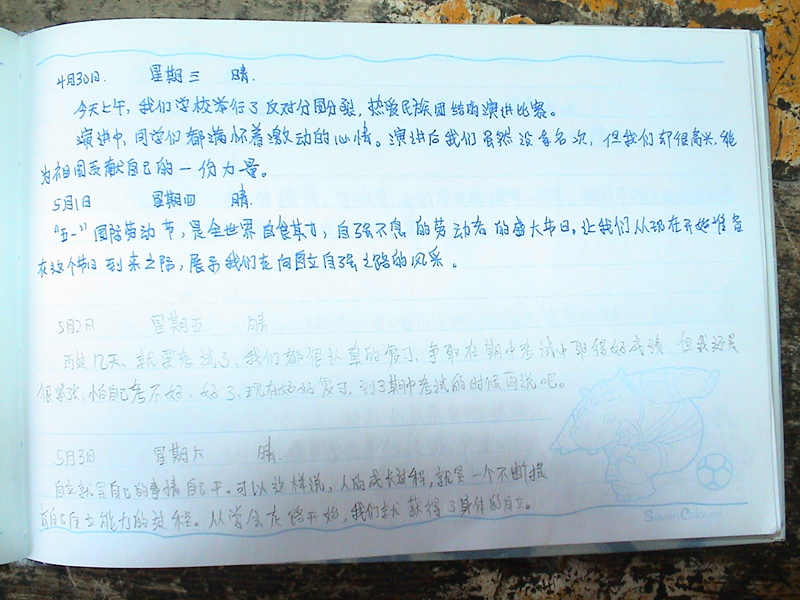 4月30日. 星期三 晴.
今天上午,我们学校举行了反对分国分裂,热爱民族团结的演讲比赛。
演讲中,同学们都满怀着激动的心情。演讲后我们虽然没拿名次,但我们却很高兴,能
为祖国贡献自己的一份力量。
5月1日 星期四 晴.
“五一”国际劳动节,是全世界自食其力,自强不息的劳动者的盛大节日。让我们从现在开始准备
在这个节日到来之际,展示我们走向自立自强之路的风采。
5月2日 星期五 晴
再过几天,就要考试了,我们都很认真的复习,争取在期中考试中取得好成绩,但我还是
很紧张,怕自己考不好,好了,现在好好复习,到了期中考试的时候再说吧。
5月3日 星期六 晴.
自立就是自己的事情自己干。可以这样说,人的成长过程,就是一个不断提
高自己自立能力的过程。从学会走路开始,我们就获得了身体的自立。
Seven Colours